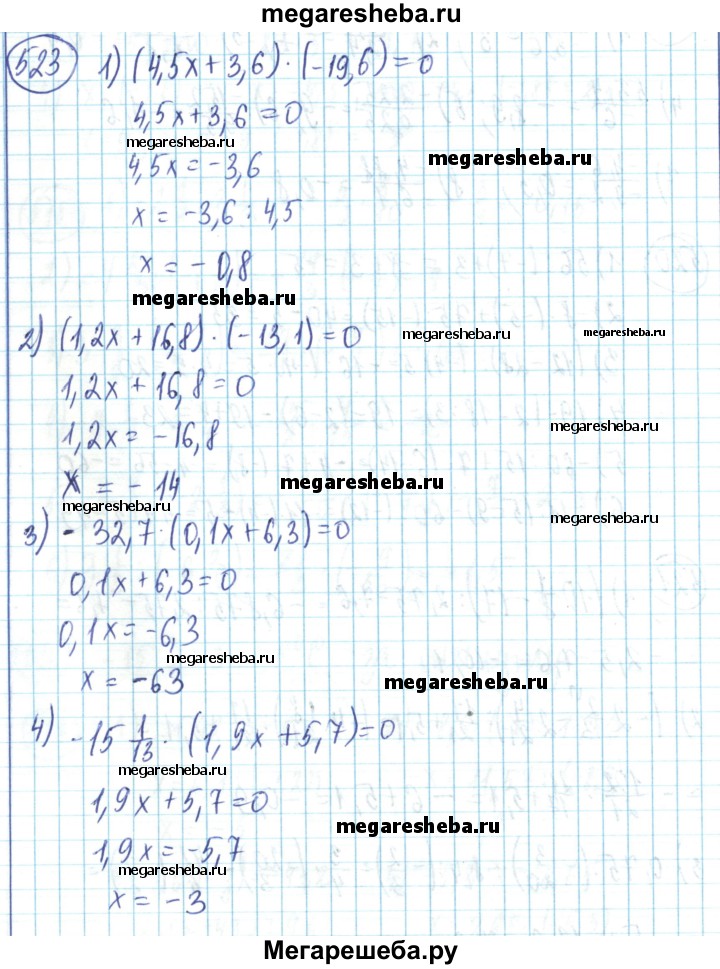 megaresheba.ru
523 1) (4,5x + 3,6) · (-19,6) = 0
4,5x + 3,6 = 0
megaresheba.ru
megaresheba.ru
4,5x = -3,6
x = -3,6 : 4,5
x = - 0,8
megaresheba.ru
2) (1,2x + 16,8) · (-13,1) = 0
megaresheba.ru
megaresheba.ru
1,2x + 16,8 = 0
megaresheba.ru
megaresheba.ru
1,2x = -16,8
x = - 14
megaresheba.ru
megaresheba.ru
megaresheba.ru
3) - 32,7 · (0,1x + 6,3) = 0
0,1x + 6,3 = 0
megaresheba.ru
0,1x = -6,3
megaresheba.ru
x = -63
megaresheba.ru
4) -15 1/13 · (1,9x + 5,7) = 0
megaresheba.ru
megaresheba.ru
1,9x + 5,7 = 0
megaresheba.ru
1,9x = -5,7
megaresheba.ru
x = -3
Мегарешеба.ру